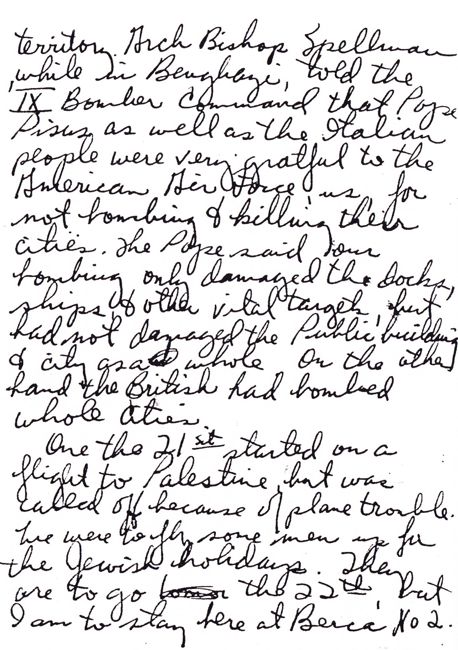 territory. Arch Bishop Spellman
while in Benghazi, told the
IX Bomber Command that Pope
Pisus as well as the Italian
people were very gratful to the
American Air Force, us, for
not bombing & killing their
cities. The Pope said our
bombing only damaged the docks,
ships, & other vital targets, but
had not damaged the Public building
& city as a whole On the other
hand the British had bombed
whole cities.
One the 21st started on a
flight to Palestine but was
called off because of plane trouble.
We were to fly some men up for
the Jewish holidays. They
are to go the 22th, but
I am to stay here at Berca No 2.